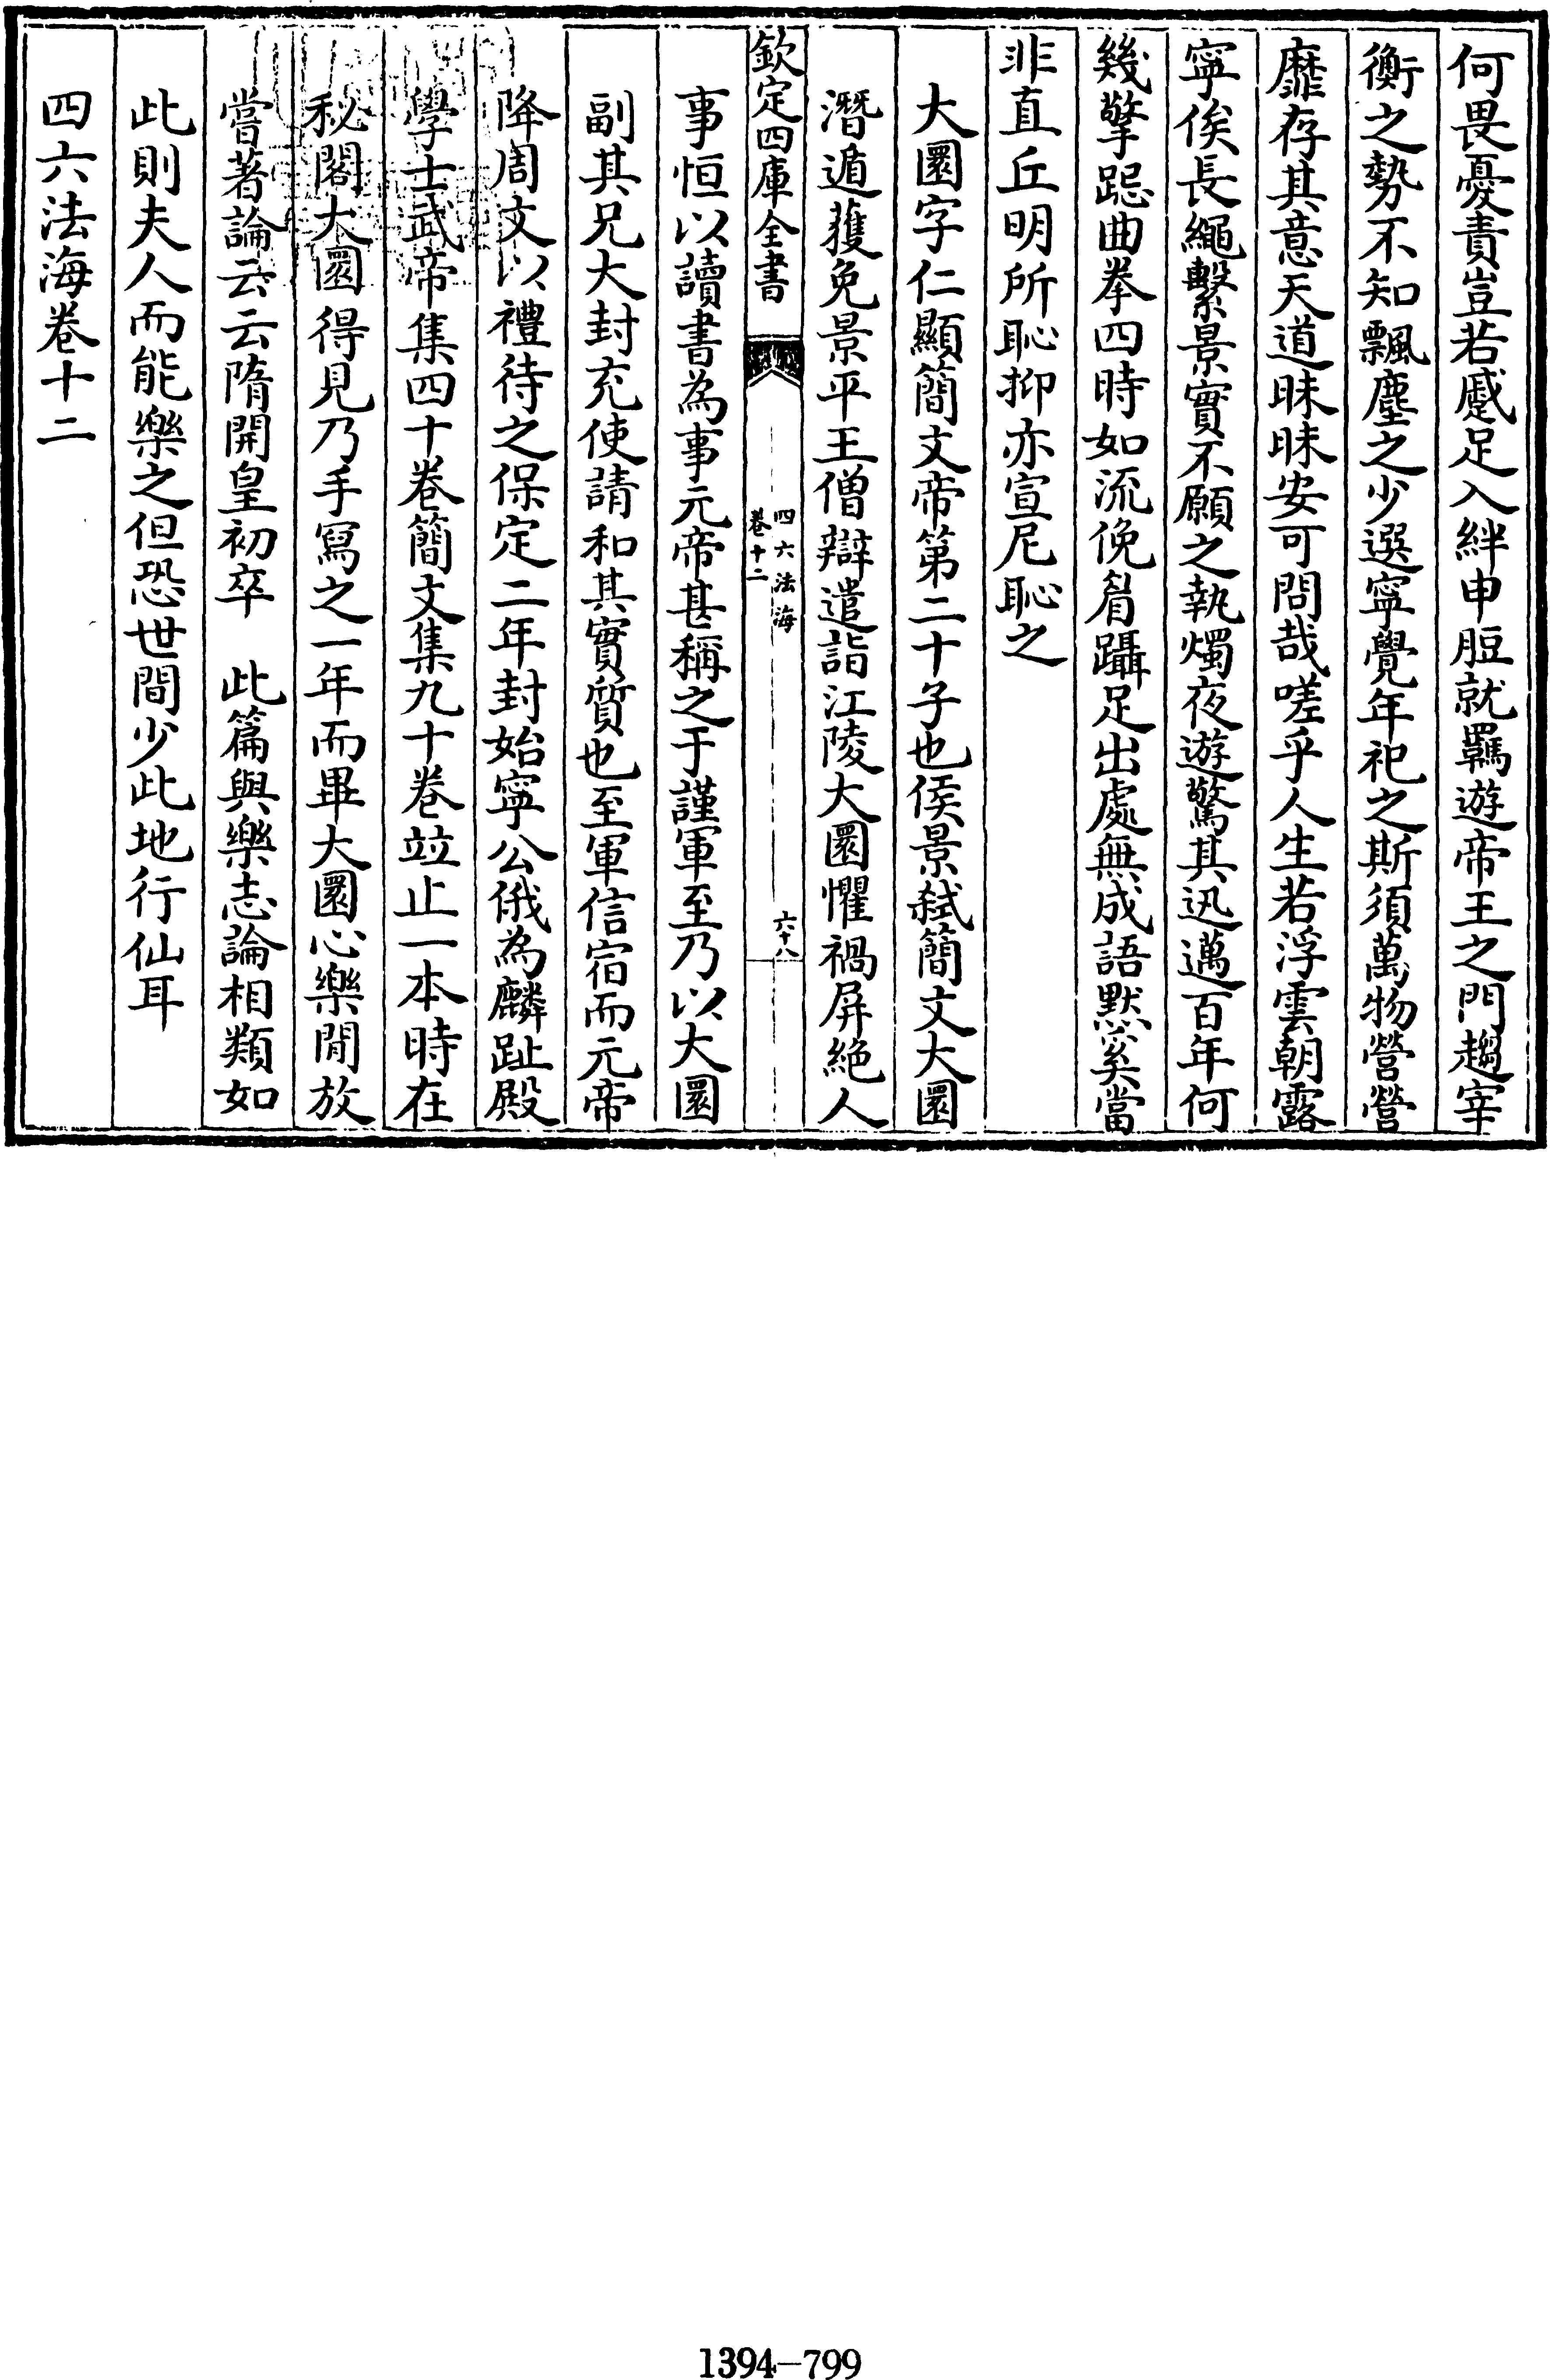 何畏憂責豈若蹙足入絆申脰就羈遊帝王之門趨宰
衡之勢不知飄塵之少選寧覺年祀之斯須萬物營營
靡存其意天道昧昧安可問哉嗟乎人生若浮雲朝露
寧俟長繩繫景實不願之執燭夜遊驚其迅邁百年何
幾擎跽曲拳四時如流俛眉躡足出處無成語默奚當
非直丘明所恥抑亦宣尼恥之
大圜字仁顯簡文帝第二十子也侯景弑簡文大圜
潛遁獲免景平王僧辯遣詣江陵大圜懼禍屏絶人
欽定四庫全書
四六法海
卷十二
六十八
事恒以讀書為事元帝甚稱之于謹軍至乃以大圜
副其兄大封充使請和其實質也至軍信宿而元帝
降周文以禮待之保定二年封始寧公俄為麟趾殿
學士武帝集四十卷簡文集九十卷竝止一本時在
秘閣大圜得見乃手寫之一年而畢大圜心樂閒放
嘗著論云云隋開皇初卒　此篇與樂志論相類如
此則夫人而能樂之但恐世間少此地行仙耳
四六法海卷十二
1394-799